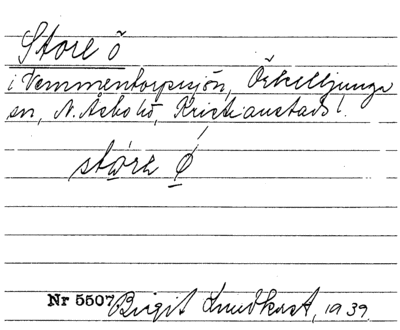 Store ö
i Vemmentorpsjön, Örkelljunga
sn, N. Åsbo hd, Kristianstads l.
stóra ǿ
Nr 5507 Birgit Lundkvist, 1939.